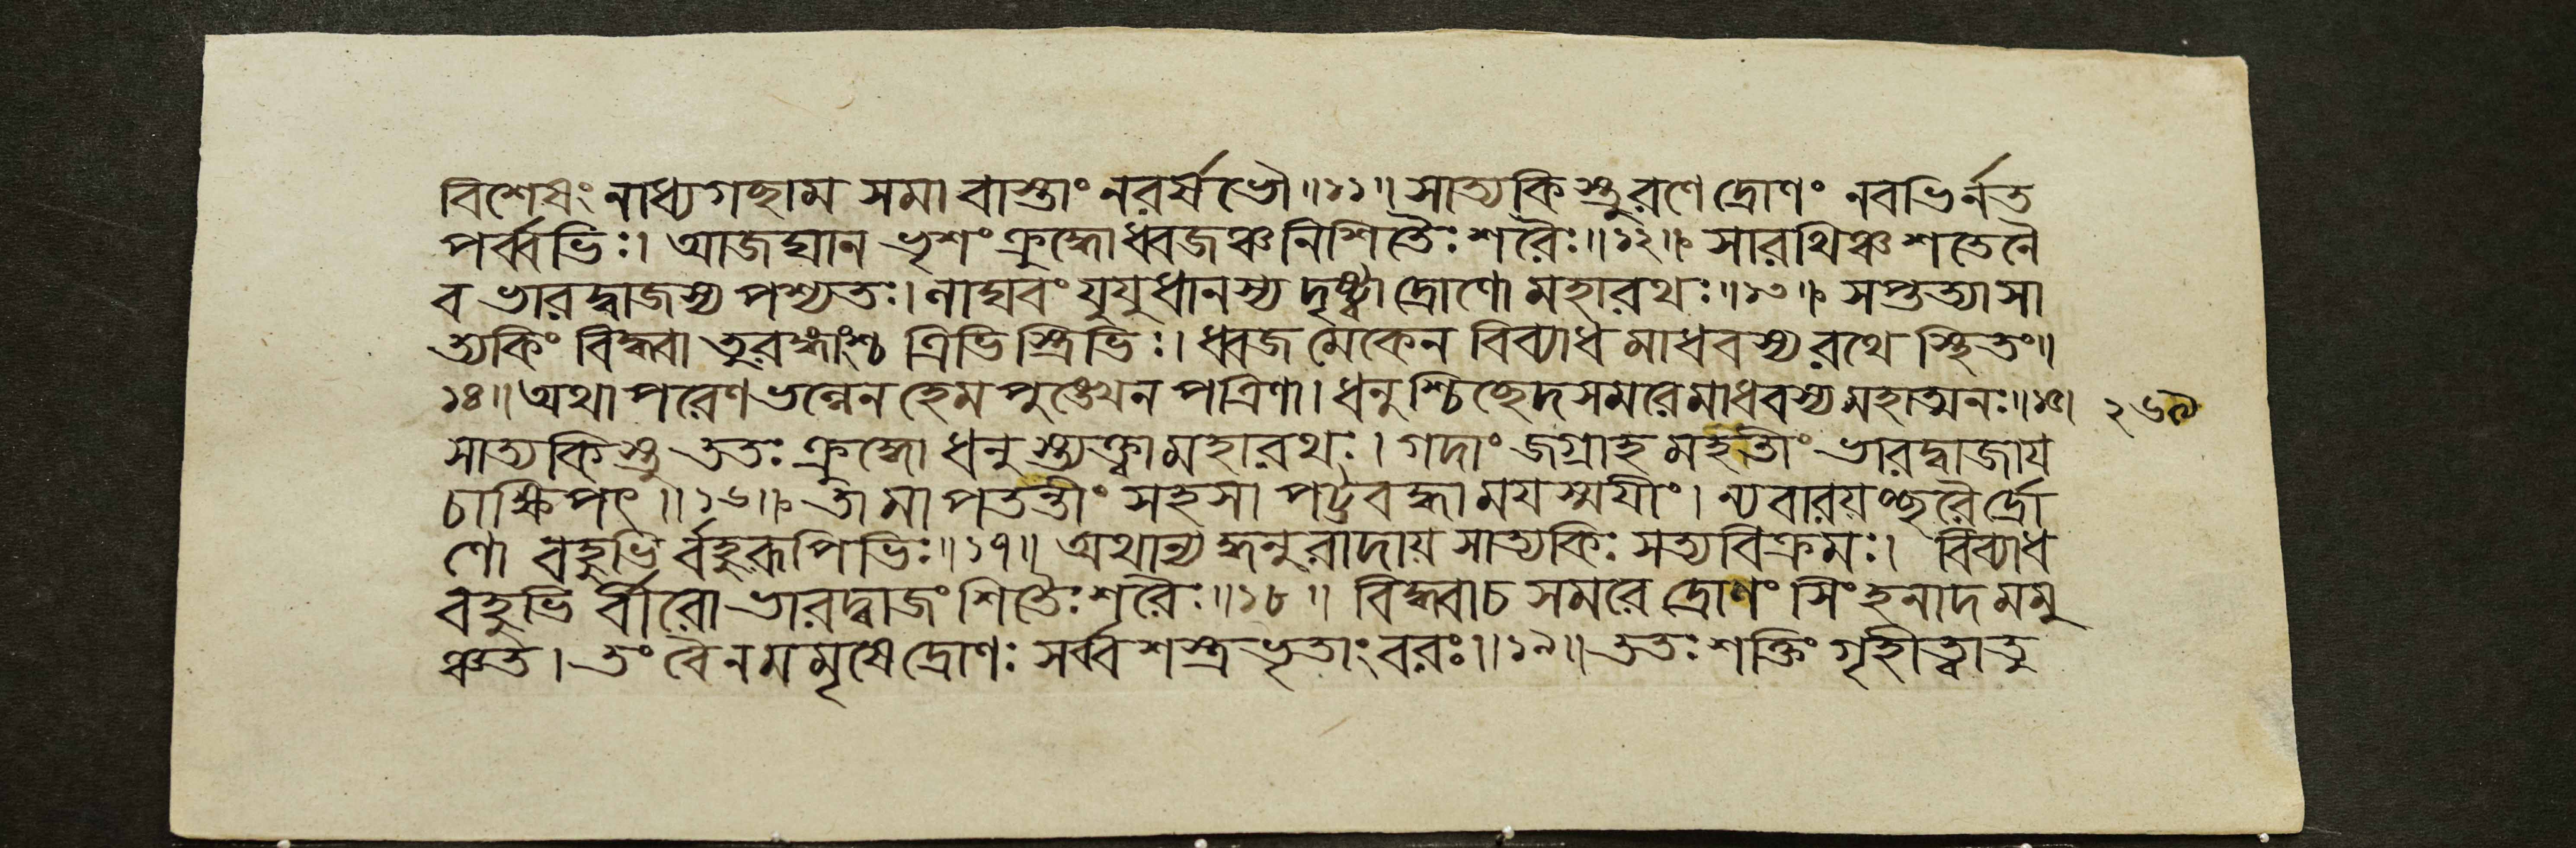 বিশেষং নাধ্যগছাম সমা বাস্তাং নরর্ষভৌ॥১১॥ সাত্যকিস্তু রণে দ্রোণং নবভির্নত
পর্ব্বভিঃ। আজঘান ভৃশং ক্রুদ্ধো ধ্বজঞ্চ নিশিতৈঃ শরৈঃ॥১২॥ সারথিঞ্চ শতেনৈ
ব ভারদ্বাজস্য পশ্যতঃ। লাঘবং যুযুধানস্য দৃষ্ট্বা দ্রোণো মহারথঃ॥১৩॥ সপ্তত্যা সা
ত্যকিং বিদ্ধ্বা তুরঙ্গাংশ্চ ত্রিভিস্ত্রিভিঃ। ধ্বজমেকেন বিব্যাধ মাধবস্য রথে স্থিতং॥
১৪॥ অথাপরেণ ভল্লেন হেমপুঙ্খেন পত্রিণা। ধনুশ্চিচ্ছেদ সমরে মাধবস্য মহাত্মনঃ॥১৫।
সাত্যকিস্তু ততঃ ক্রুদ্ধো ধনুস্ত্যক্ত্বা মহারথঃ। গদাং জগ্রাহ মহতীং ভারদ্বাজায
চাক্ষিপৎ॥১৬॥ তামাপতন্তীং সহসা পট্টবদ্ধাময়স্ময়ীং। ন্যবারয়চ্ছরৈর্দ্রো
ণো বহুভির্বহুরূপিভিঃ॥১৭॥ অথান্যদ্ধনুরাদায় সাত্যকিঃ সত্যবিক্রমঃ। বিব্যাধ
বহুভির্বীরো ভারদ্বাজং শিতৈঃ শরৈঃ॥১৮॥ বিদ্ধ্বা চ সমরে দ্রোণং সিংহনাদমমু
ঞ্চত। তং বৈ ন মমৃষে দ্রোণঃ সর্ব্বশস্ত্রভৃতাং বরঃ॥১৯॥ ততঃ শক্তিং গৃহীত্বা তু